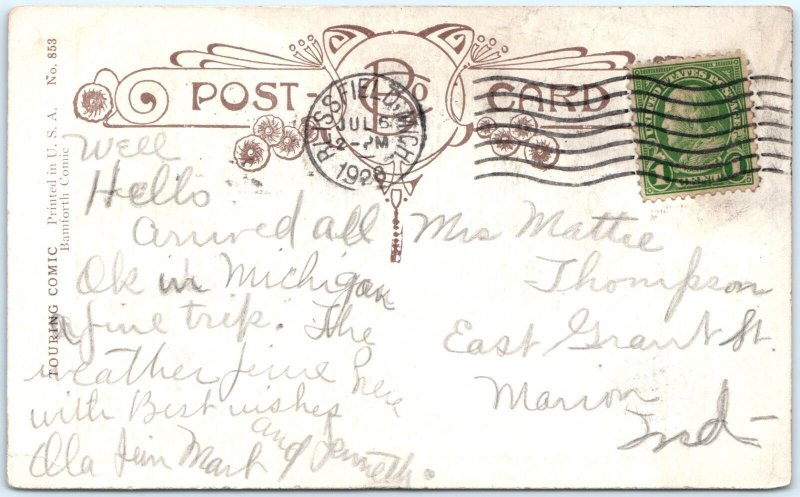 TOURING COMIC Printed in U. S. A. No. 853
Bamforth Comic
POST-CARD
BLISSFIELD, MICH.
JUL 6
2-PM
1928
UNITED STATES POSTAGE
1 1
Well
Hello
Arrived all
Ok in Michigan
a fine trip. The
weather fine here
with Best wishes
Ola Jim Mark and Kenneth.
Mrs Mattie
Thompson
East Grant St.
Marion
Ind-